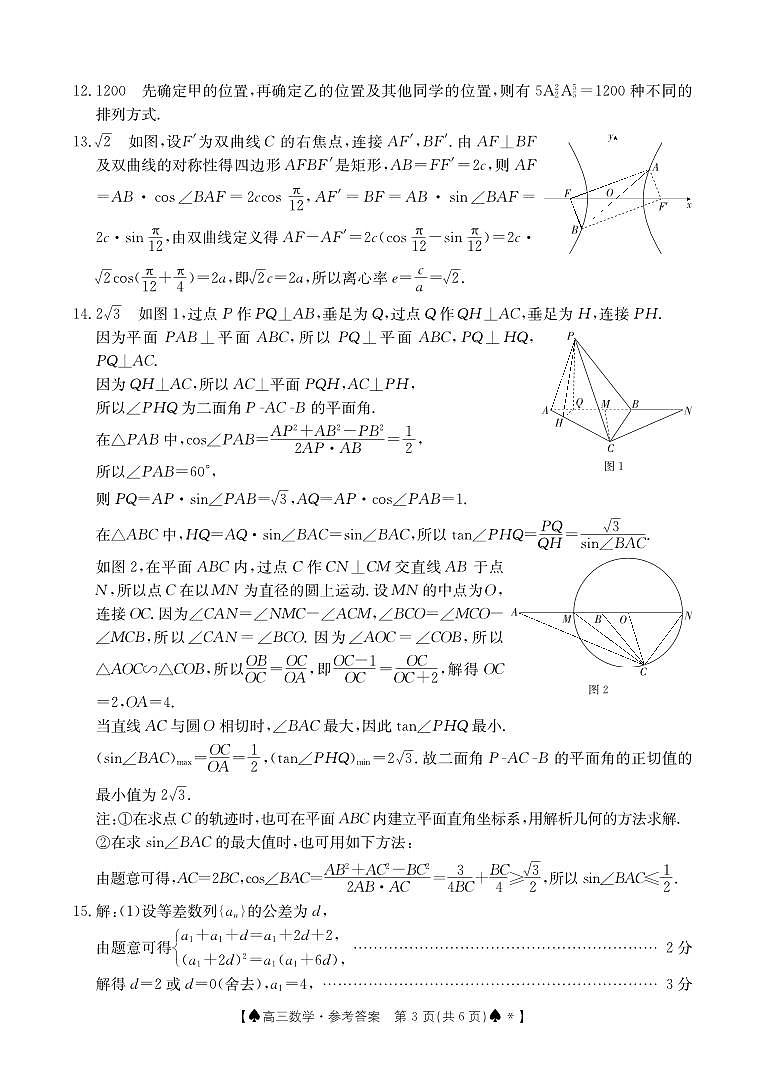 12. 1200 先确定甲的位置,再确定乙的位置及其他同学的位置,则有 5A₂²A₅⁵=1200 种不同的
排列方式.
13. √2 如图,设F′为双曲线 C 的右焦点,连接 AF′,BF′. 由 AF⊥BF
及双曲线的对称性得四边形 AFBF′是矩形,AB=FF′=2c,则 AF
=AB·cos∠BAF=2ccos π/12, AF′=BF=AB·sin∠BAF=
2c·sin π/12,由双曲线定义得 AF-AF′=2c(cos π/12-sin π/12)=2c·
√2cos(π/12+π/4)=2a,即√2c=2a,所以离心率 e=c/a=√2.
y
A
F
O
F′
x
B
14. 2√3 如图 1,过点 P 作 PQ⊥AB,垂足为 Q,过点 Q 作 QH⊥AC,垂足为 H,连接 PH.
因为平面 PAB⊥平面 ABC,所以 PQ⊥平面 ABC,PQ⊥HQ,
PQ⊥AC.
因为 QH⊥AC,所以 AC⊥平面 PQH,AC⊥PH,
所以∠PHQ 为二面角 P-AC-B 的平面角.
在△PAB 中,cos∠PAB=(AP²+AB²-PB²)/(2AP·AB)=1/2,
所以∠PAB=60°,
则 PQ=AP·sin∠PAB=√3,AQ=AP·cos∠PAB=1.
P
A
Q
M
B
N
H
C
图 1
在△ABC 中,HQ=AQ·sin∠BAC=sin∠BAC,所以 tan∠PHQ=PQ/QH=√3/sin∠BAC.
如图 2,在平面 ABC 内,过点 C 作 CN⊥CM 交直线 AB 于点
N,所以点 C 在以MN 为直径的圆上运动. 设MN 的中点为O,
连接 OC. 因为∠CAN=∠NMC-∠ACM,∠BCO=∠MCO-
∠MCB,所以∠CAN=∠BCO. 因为∠AOC=∠COB,所以
△AOC∽△COB,所以OB/OC=OC/OA,即(OC-1)/OC=OC/(OC+2),解得 OC
=2,OA=4.
A
M
B
O
N
C
图 2
当直线 AC 与圆 O 相切时,∠BAC 最大,因此 tan∠PHQ 最小.
(sin∠BAC)max=OC/OA=1/2,(tan∠PHQ)min=2√3. 故二面角 P-AC-B 的平面角的正切值的
最小值为 2√3.
注:①在求点 C 的轨迹时,也可在平面 ABC 内建立平面直角坐标系,用解析几何的方法求解.
②在求 sin∠BAC 的最大值时,也可用如下方法:
由题意可得,AC=2BC,cos∠BAC=(AB²+AC²-BC²)/(2AB·AC)=3/(4BC)+BC/4≥√3/2,所以 sin∠BAC≤1/2.
15. 解:(1)设等差数列{aₙ}的公差为 d,
由题意可得{a₁+a₁+d=a₁+2d+2,
(a₁+2d)²=a₁(a₁+6d), ………………………… 2 分
解得 d=2 或 d=0(舍去),a₁=4, ………………………… 3 分
【♠高三数学·参考答案 第 3 页(共 6 页)♠ *】